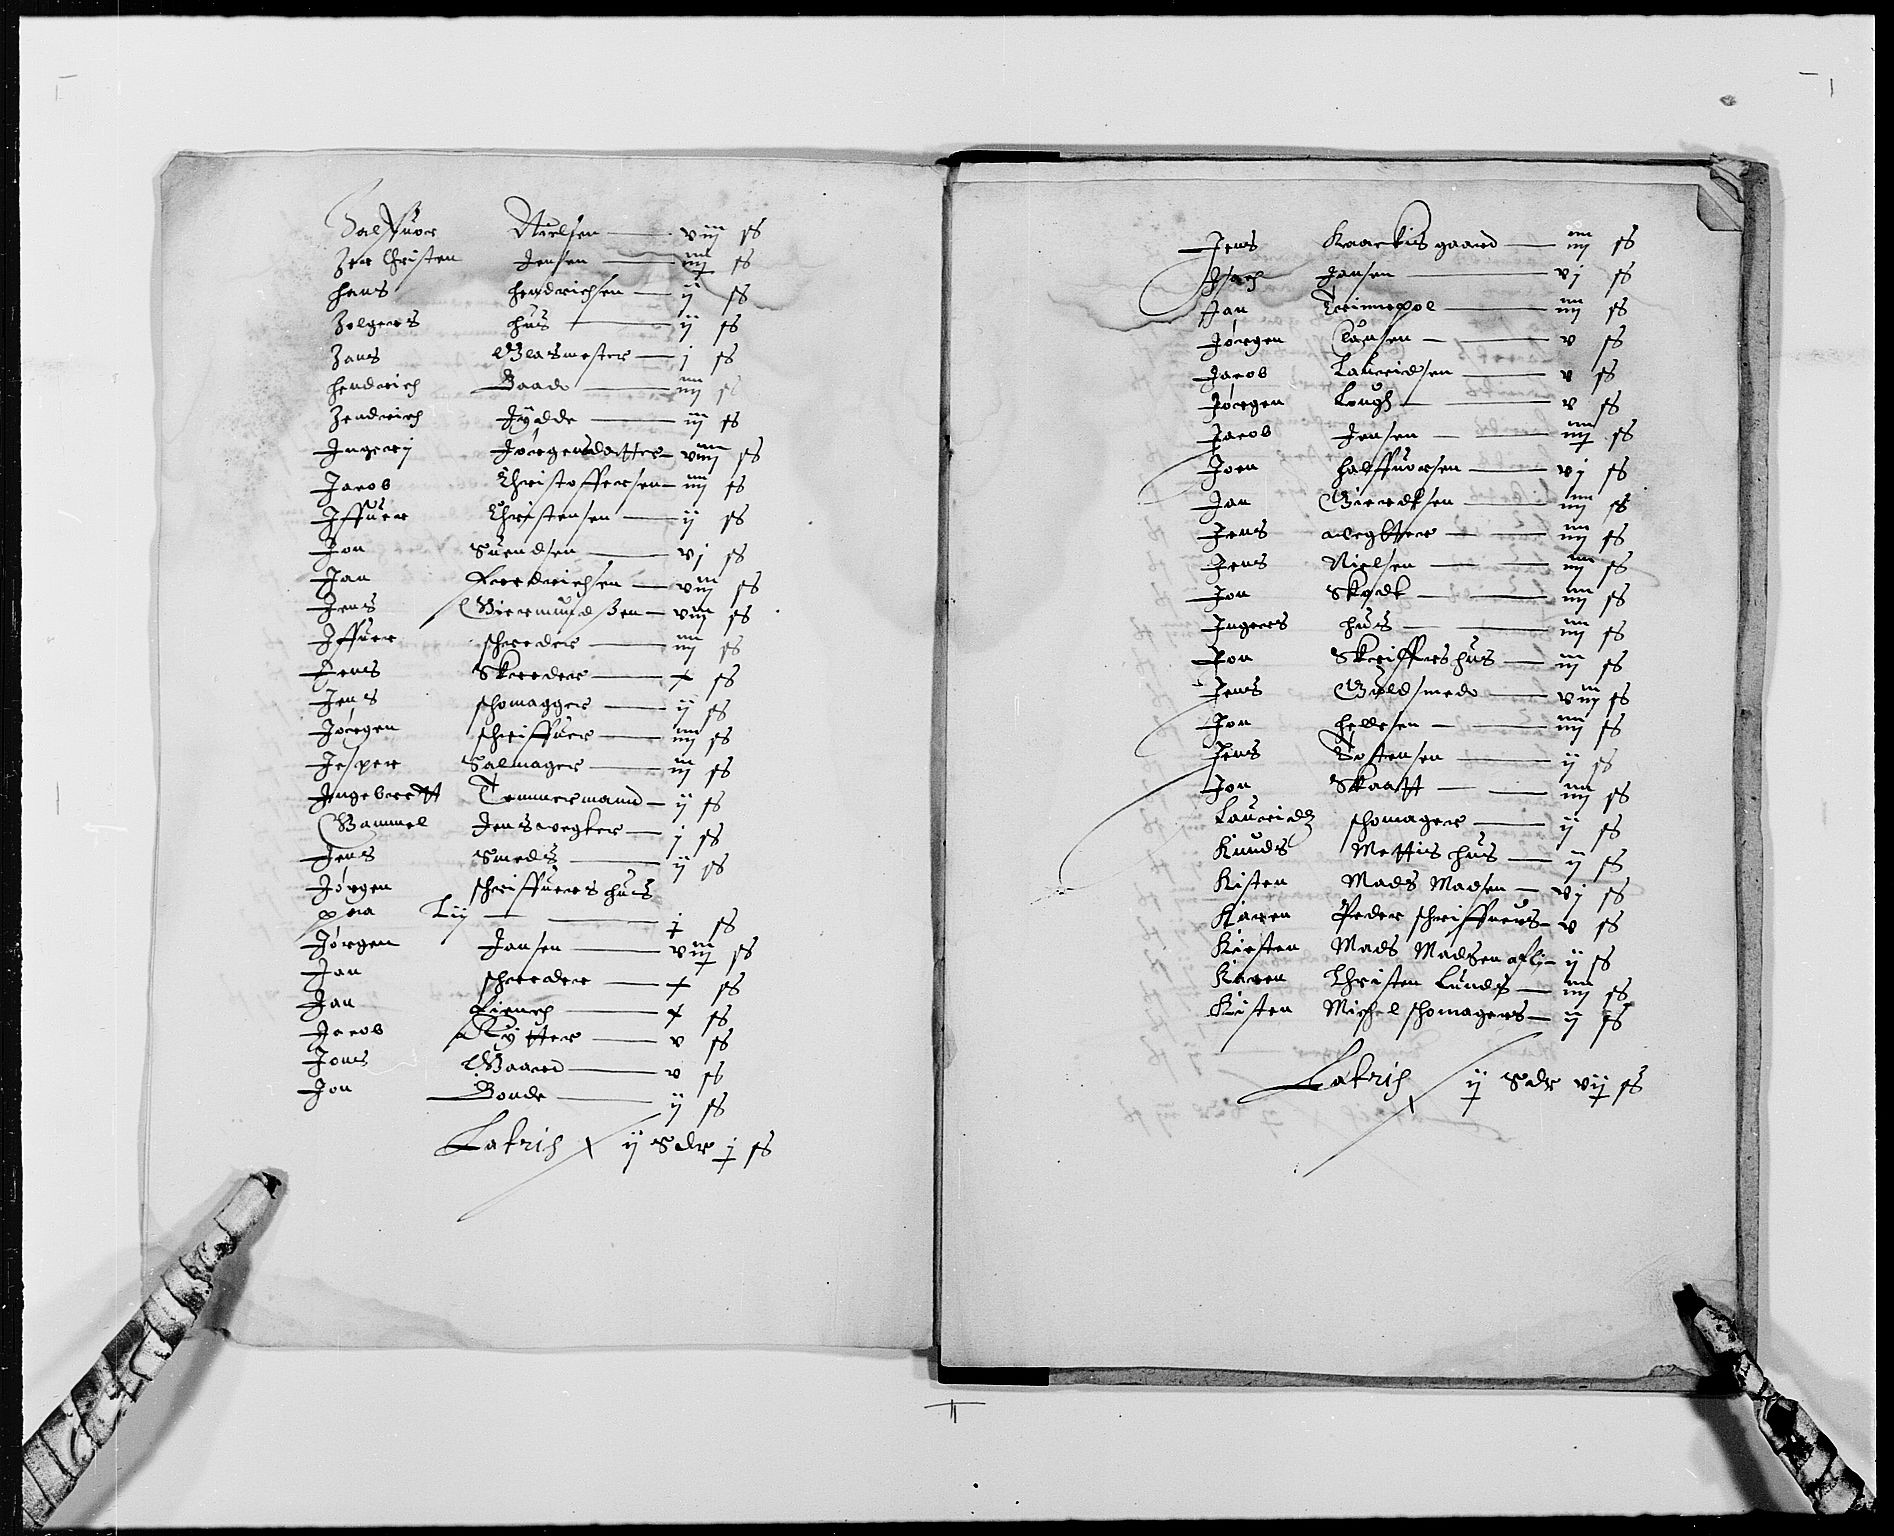 Halffuor Nielsen — viij ss
Her Christen Jensen — iiij ss
Hans Hendrichsen — ij ss
Holgers hus — ij ss
Hans Glasmester — j ss
Hendrich Baade — iiij ss
Hendrich Jydde — iij ss
Ingerij Jørgensdatter — viiij ss
Jacob Christoffersen — iiij ss
Iffuer Christensen — ij ss
Jon Suendsen — vj ss
Jan Fredrichsen — viij ss
Jens Giermundsen — viij ss
Iffuer schreder — iiij ss
Jens Skreder — ss
Jens schomagger — ij ss
Jørgen schriffuer — iiij ss
Jesper Salmager — iij ss
Ingebrett Temmermand — ij ss
Gammel Jens vegter — j ss
Jens Smeds — ij ss
Jørgen schriffuers hus
paa Lij — j ss
Jørgen Jansen — viij ss
Jan schreder — ss
Jan — ss
Jacob Rytter — v ss
Jons Gaard — v ss
Jon Bonde — ij ss
Latris ij Sdr j ss
Jens gaard — iiij ss
Isach Jansen — vj ss
Jan Trinnepol — iiij ss
Jørgen Clausen — v ss
Jacob Lauridsen — v ss
Jørgen Lough — v ss
Jacob Jensen — iiij ss
Joen Halffuorsen — vj ss
Jan Gierdtsen — iiij ss
Jens vegtter — iiij ss
Jens Nielsen — iiij ss
Jon Skodt — iiij ss
Ingers hus — iiij ss
Jon Skriffers hus — iij ss
Jens Guldsmed — viij ss
Jon Hellesen — iiij ss
Jens Tostensen — ij ss
Jon Skaatt — iiij ss
Lauridz schomager — ij ss
Knuds Mettis hus — ij ss
Kisten Mads Madsen — vj ss
Karen Peder schriffuers — v ss
Kirsten Mads Madsen — ij ss
Karen Christen Lunds — iiij ss
Kisten Michel schomagers — ij ss
Latris ij Sdr vij ss